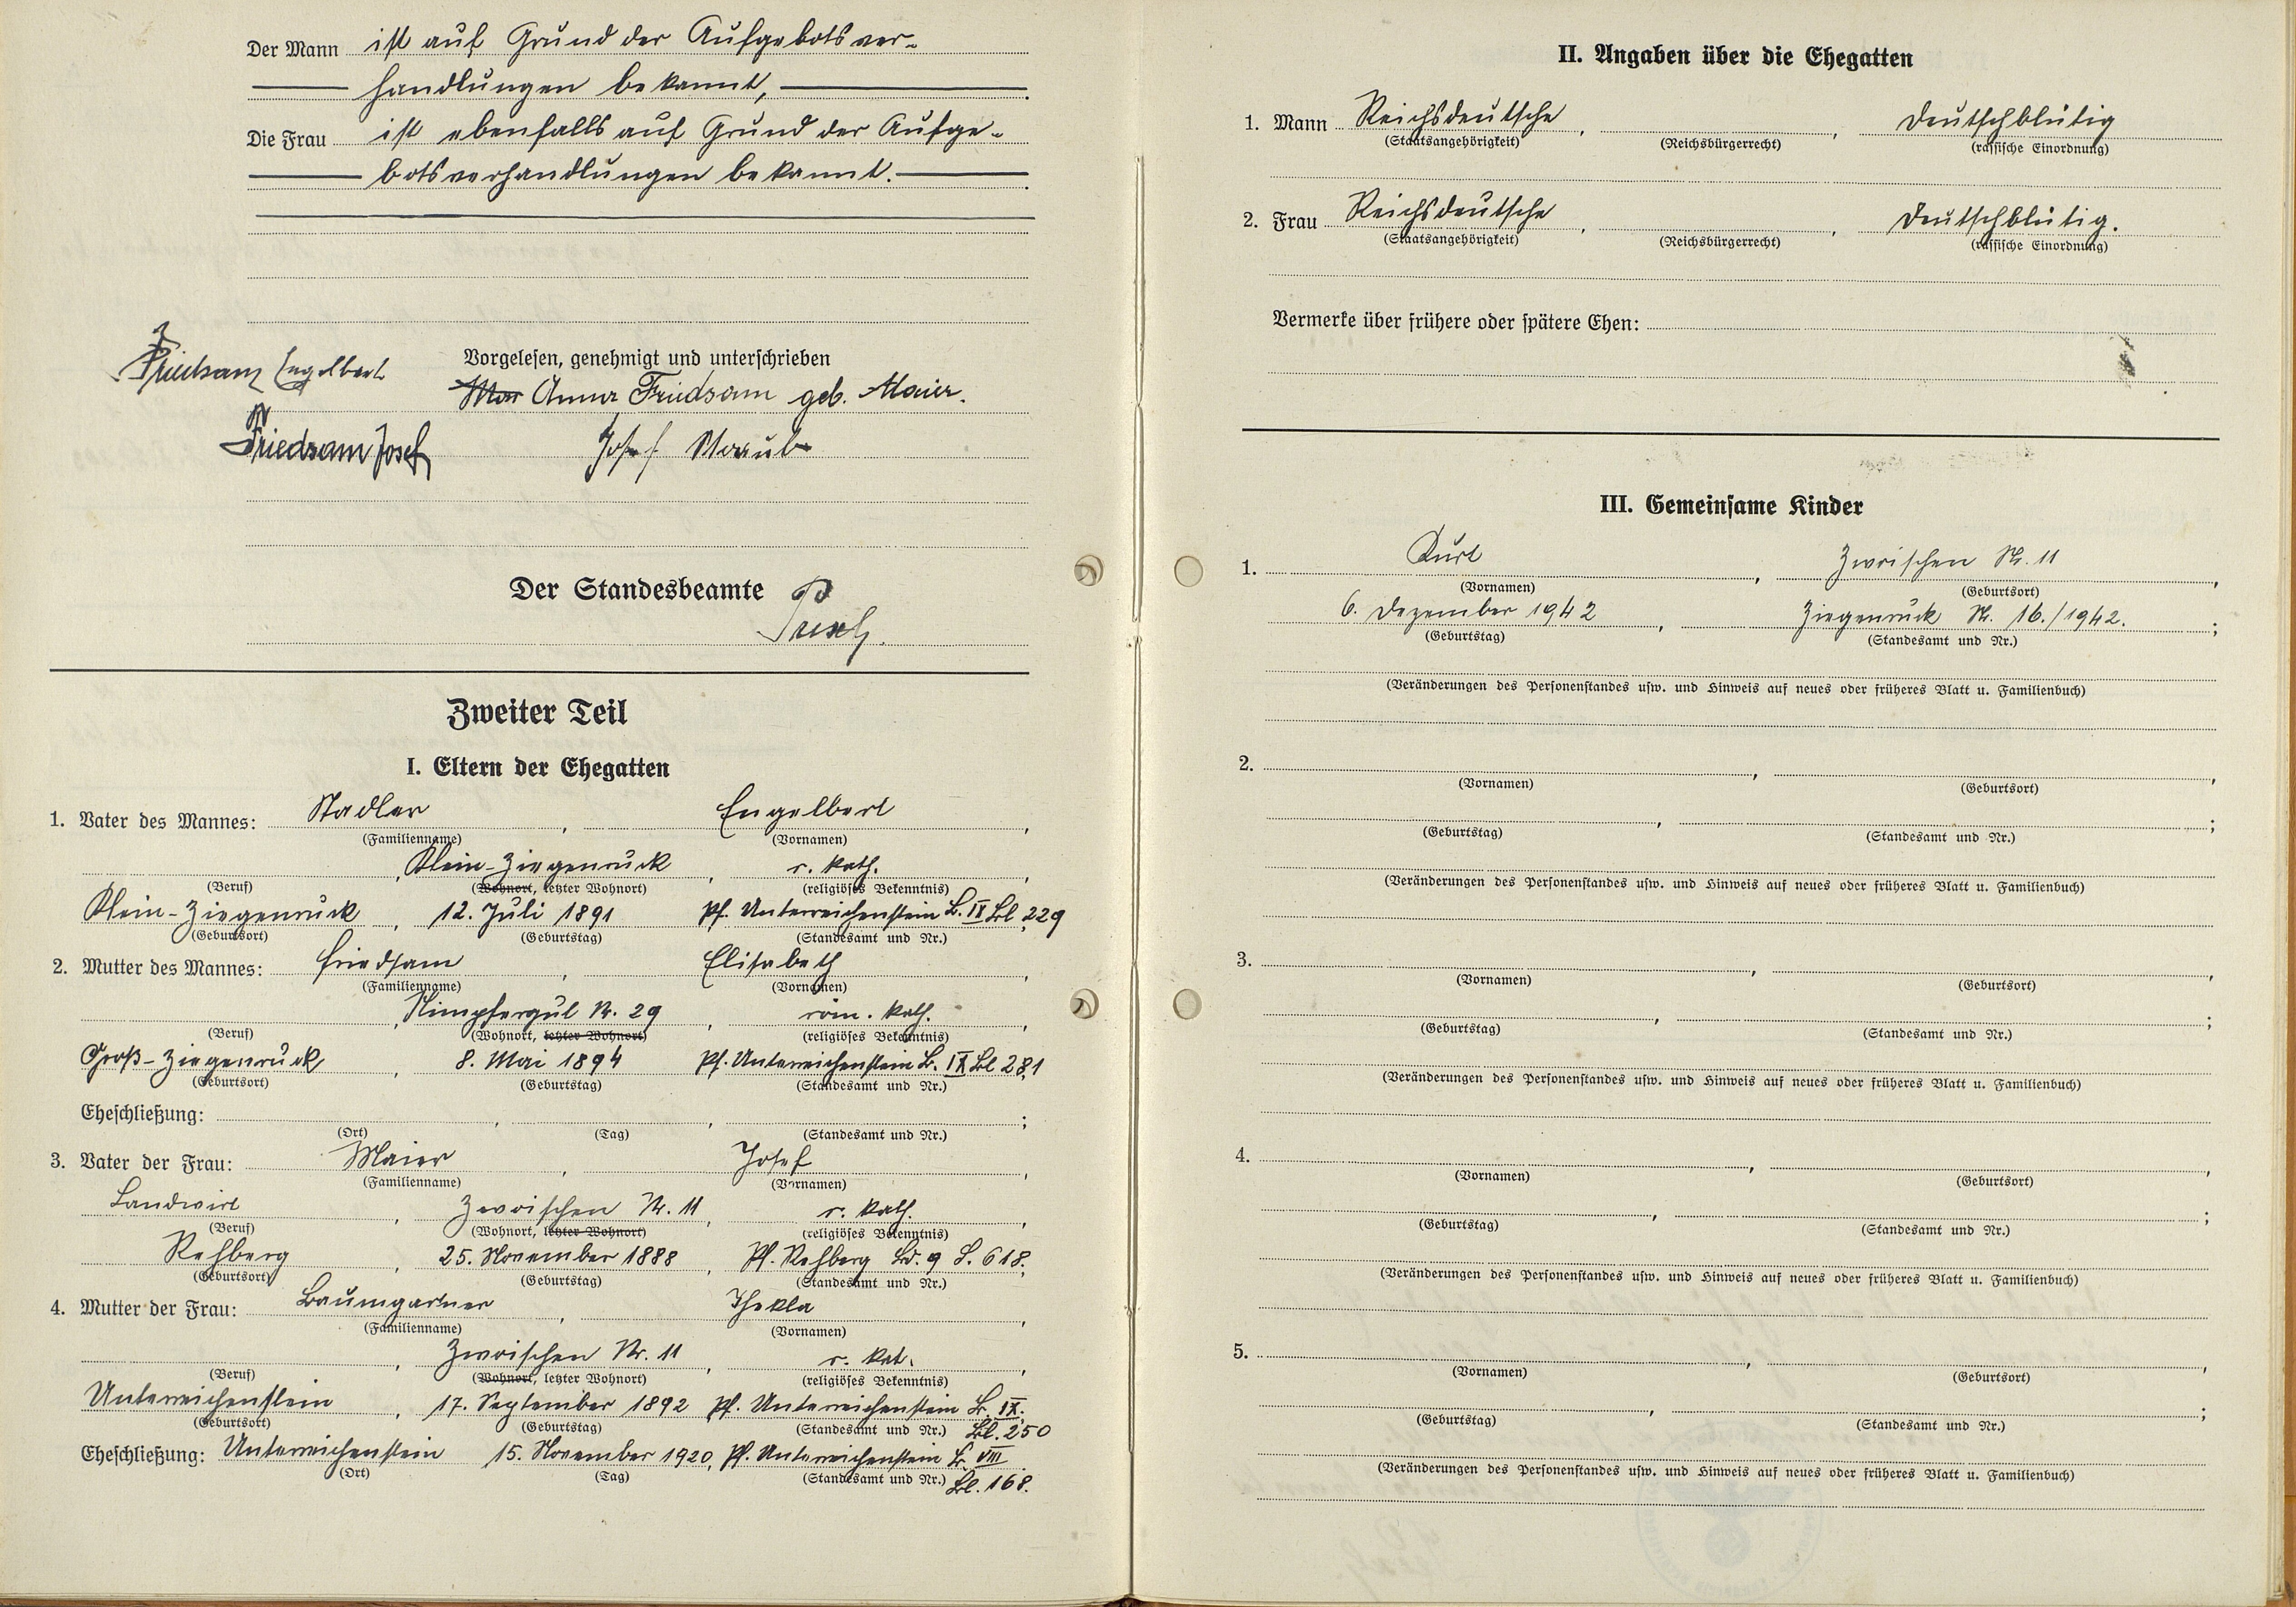 Der Mann ist auf Grund der Aufgebotsver-
handlungen bekannt,
Die Frau ist ebenfalls auf Grund der Aufge-
botsverhandlungen bekannt.
Vorgelesen, genehmigt und unterschrieben
Friedsam Engelbert
Anna Friedsam geb. Maier.
Friedsam Josef Josef
Der Standesbeamte
Zweiter Teil
I. Eltern der Ehegatten
1. Vater des Mannes: Stadler, Engelbert,
(Familienname) (Vornamen)
, Klein-Ziegenruck, r. kath.,
(Beruf) (Wohnort, letzter Wohnort) (religiöses Bekenntnis)
Klein-Ziegenruck, 12. Juli 1891 Pf. Unterreichenstein B. IX Bl. 229
(Geburtsort) (Geburtstag) (Standesamt und Nr.)
2. Mutter des Mannes: Friedsam, Elisabeth,
(Familienname) (Vornamen)
, Nr. 29, röm. kath.,
(Beruf) (Wohnort, letzter Wohnort) (religiöses Bekenntnis)
Groß-Ziegenruck, 8. Mai 1894 Pf. Unterreichenstein B. IX Bl 281
(Geburtsort) (Geburtstag) (Standesamt und Nr.)
Eheschließung: , , ;
(Ort) (Tag) (Standesamt und Nr.)
3. Vater der Frau: Maier, Josef,
(Familienname) (Vornamen)
Landwirt, Zwoischen Nr. 11, r. kath.,
(Beruf) (Wohnort, letzter Wohnort) (religiöses Bekenntnis)
Rehberg, 25. November 1888, Pf. Rehberg Bd. 9 S. 618.
(Geburtsort) (Geburtstag) (Standesamt und Nr.)
4. Mutter der Frau: Baumgartner, Thekla,
(Familienname) (Vornamen)
, Zwoischen Nr. 11, r. kat.,
(Beruf) (Wohnort, letzter Wohnort) (religiöses Bekenntnis)
Unterreichenstein, 17. September 1892 Pf. Unterreichenstein B. IX.
(Geburtsort) (Geburtstag) (Standesamt und Nr.) Bl. 250
Eheschließung: Unterreichenstein 15. November 1920, Pf. Unterreichenstein B. VIII
(Ort) (Tag) (Standesamt und Nr.) Bl. 168.
II. Angaben über die Ehegatten
1. Mann Reichsdeutsche, , Deutschblütig
(Staatsangehörigkeit) (Reichsbürgerrecht) (rassische Einordnung)
2. Frau Reichsdeutsche, , Deutschblütig.
(Staatsangehörigkeit) (Reichsbürgerrecht) (rassische Einordnung)
Vermerke über frühere oder spätere Ehen:
III. Gemeinsame Kinder
1. Kurt, Zwoischen Nr. 11,
(Vornamen) (Geburtsort)
6. Dezember 1942, Ziegenruck Nr. 16./1942.;
(Geburtstag) (Standesamt und Nr.)
(Veränderungen des Personenstandes usw. und Hinweis auf neues oder früheres Blatt u. Familienbuch)
2. , ,
(Vornamen) (Geburtsort)
, ;
(Geburtstag) (Standesamt und Nr.)
(Veränderungen des Personenstandes usw. und Hinweis auf neues oder früheres Blatt u. Familienbuch)
3. , ,
(Vornamen) (Geburtsort)
, ;
(Geburtstag) (Standesamt und Nr.)
(Veränderungen des Personenstandes usw. und Hinweis auf neues oder früheres Blatt u. Familienbuch)
4. , ,
(Vornamen) (Geburtsort)
, ;
(Geburtstag) (Standesamt und Nr.)
(Veränderungen des Personenstandes usw. und Hinweis auf neues oder früheres Blatt u. Familienbuch)
5. , ,
(Vornamen) (Geburtsort)
, ;
(Geburtstag) (Standesamt und Nr.)
(Veränderungen des Personenstandes usw. und Hinweis auf neues oder früheres Blatt u. Familienbuch)